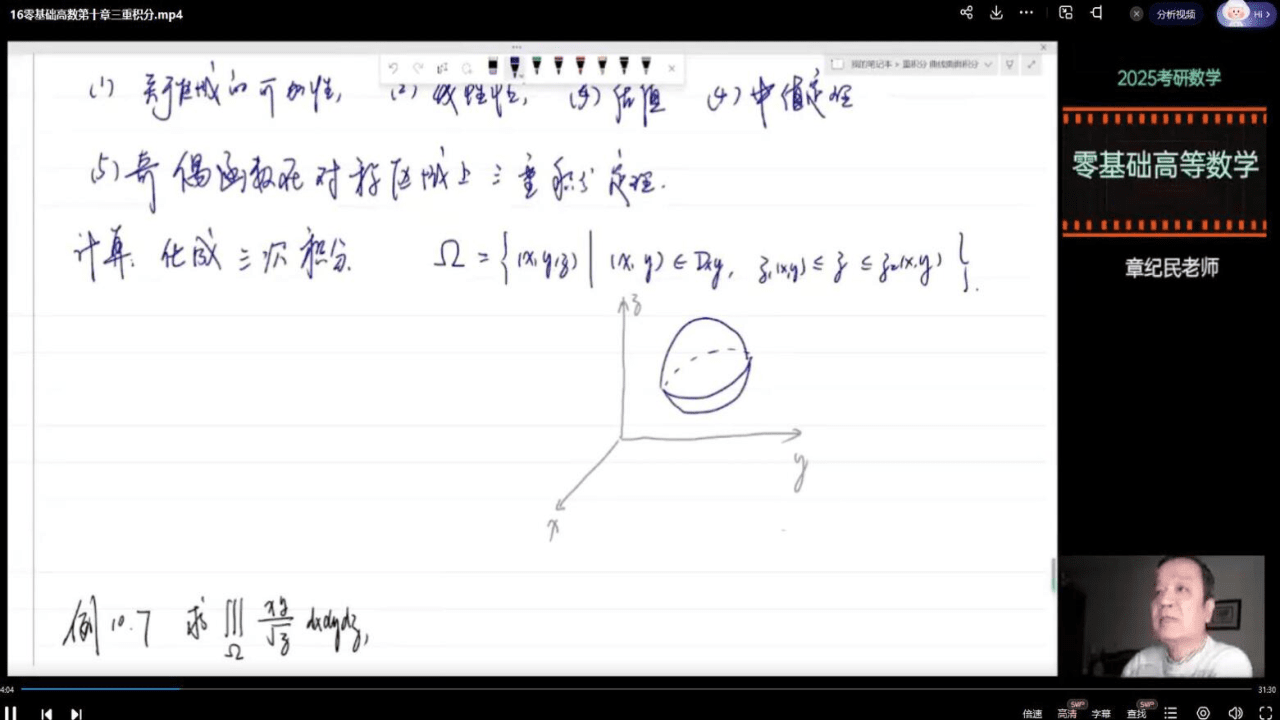 16零基础高数第十章三重积分.mp4
分析视频
Hi >
我的笔记本 > 重积分 曲线曲面积分
2025考研数学
零基础高等数学
章纪民老师
(1) 关于区域的可加性, (2) 线性性, (3) 估值 (4) 中值定理
(5) 奇偶函数在对称区域上三重积分定理.
计算: 化成三次积分. Ω = { (x,y,z) | (x,y) ∈ Dxy, z₁(x,y) ≤ z ≤ z₂(x,y) }.
z
y
x
例10.7 求 ∭_Ω xy/√z dxdydz,
4:04
31:30
倍速 高清 SWP 字幕 查找 SWP